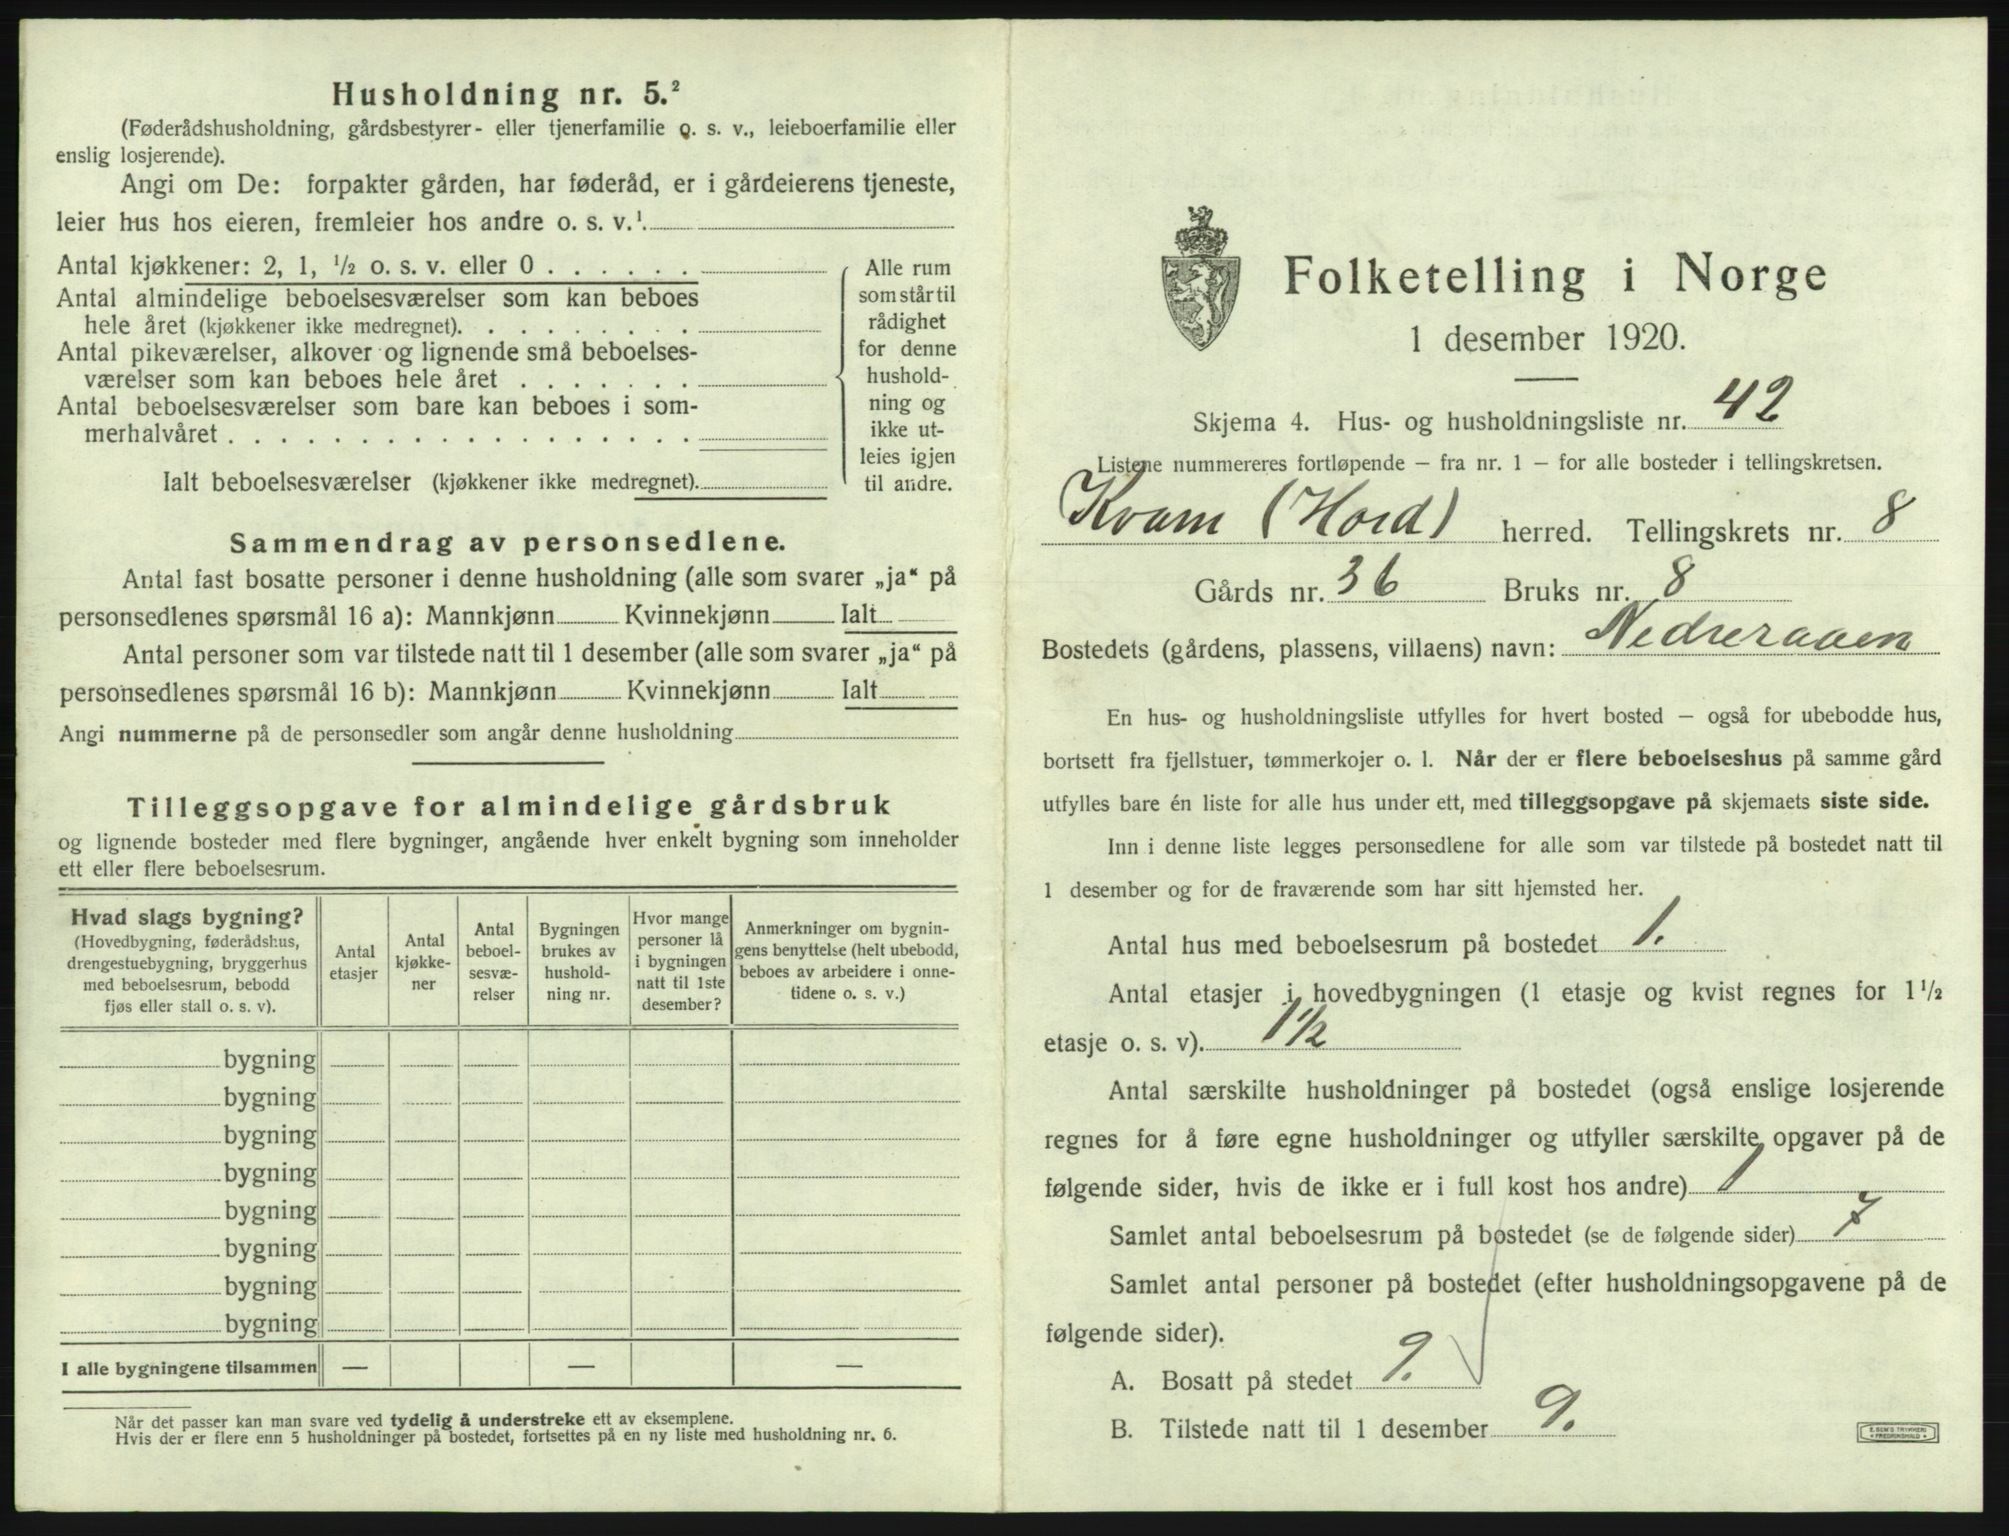 Husholdning nr. 5.²
(Føderådshusholdning, gårdsbestyrer- eller tjenerfamilie o. s. v., leieboerfamilie eller
enslig losjerende).
Angi om De: forpakter gården, har føderåd, er i gårdeierens tjeneste,
leier hus hos eieren, fremleier hos andre o. s. v.¹.
Antal kjøkkener: 2, 1, ½ o. s. v. eller 0 . . . . . .
Antal almindelige beboelsesværelser som kan beboes
hele året (kjøkkener ikke medregnet). . . . . . . . .
Antal pikeværelser, alkover og lignende små beboelses-
værelser som kan beboes hele året . . . . . . .
Antal beboelsesværelser som bare kan beboes i som-
merhalvåret . . . . . . . . . . . . . . . . . .
Ialt beboelsesværelser (kjøkkener ikke medregnet).
Alle rum
som står til
rådighet
for denne
hushold-
ning og
ikke ut-
leies igjen
til andre.
Sammendrag av personsedlene.
Antal fast bosatte personer i denne husholdning (alle som svarer „ja“ på
personsedlenes spørsmål 16 a): Mannkjønn Kvinnekjønn Ialt
Antal personer som var tilstede natt til 1 desember (alle som svarer „ja“ på
personsedlenes spørsmål 16 b): Mannkjønn Kvinnekjønn Ialt
Angi nummerne på de personsedler som angår denne husholdning
Tilleggsopgave for almindelige gårdsbruk
og lignende bosteder med flere bygninger, angående hver enkelt bygning som inneholder
ett eller flere beboelsesrum.
Hvad slags bygning?
(Hovedbygning, føderådshus,
drengestuebygning, bryggerhus
med beboelsesrum, bebodd
fjøs eller stall o. s. v).
Antal
etasjer
Antal
kjøkke-
ner
Antal
beboel-
sesvæ-
relser
Bygningen
brukes av
hushold-
ning nr.
Hvor mange
personer lå
i bygningen
natt til 1ste
desember?
Anmerkninger om bygnin-
gens benyttelse (helt ubebodd,
beboes av arbeidere i onne-
tidene o. s. v.)
bygning
bygning
bygning
bygning
bygning
bygning
bygning
bygning
I alle bygningene tilsammen — — —
Når det passer kan man svare ved tydelig å understreke ett av eksemplene.
Hvis der er flere enn 5 husholdninger på bostedet, fortsettes på en ny liste med husholdning nr. 6.
Folketelling i Norge
1 desember 1920.
Skjema 4. Hus- og husholdningsliste nr. 42
Listene nummereres fortløpende – fra nr. 1 – for alle bosteder i tellingskretsen.
Kvam (Hord) herred. Tellingskrets nr. 8
Gårds nr. 36 Bruks nr. 8
Bostedets (gårdens, plassens, villaens) navn: Nedreraaen
En hus- og husholdningsliste utfylles for hvert bosted – også for ubebodde hus,
bortsett fra fjellstuer, tømmerkojer o. l. Når der er flere beboelseshus på samme gård
utfylles bare én liste for alle hus under ett, med tilleggsopgave på skjemaets siste side.
Inn i denne liste legges personsedlene for alle som var tilstede på bostedet natt til
1 desember og for de fraværende som har sitt hjemsted her.
Antal hus med beboelsesrum på bostedet 1.
Antal etasjer i hovedbygningen (1 etasje og kvist regnes for 1½
etasje o. s. v). 1½
Antal særskilte husholdninger på bostedet (også enslige losjerende
regnes for å føre egne husholdninger og utfyller særskilte opgaver på de
følgende sider, hvis de ikke er i full kost hos andre) 1
Samlet antal beboelsesrum på bostedet (se de følgende sider) 7
Samlet antal personer på bostedet (efter husholdningsopgavene på de
følgende sider).
A. Bosatt på stedet 9.
B. Tilstede natt til 1 desember 9.
E. SEM'S TRYKKERI
FREDRIKSHALD